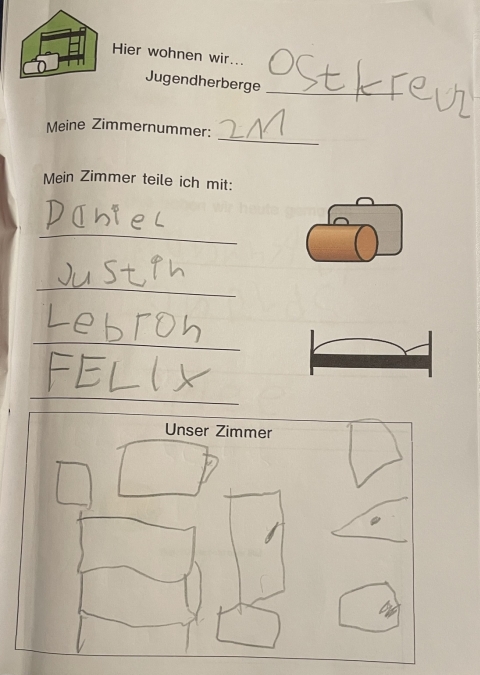 Hier wohnen wir...
Jugendherberge Ostkreuz
Meine Zimmernummer: 2M
Mein Zimmer teile ich mit:
Daniel
Justin
Lebron
FELIX
Unser Zimmer